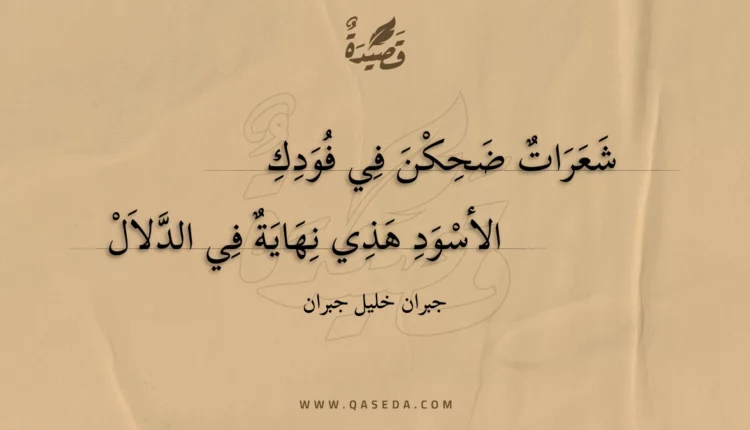 قَصِيدَةٌ
شَعَرَاتٌ ضَحِكْنَ فِي فُوَدِكِ
الأسْوَدِ هَذِي نِهَايَةٌ فِي الدَّلاَلْ
جبران خليل جبران
WWW.QASEDA.COM